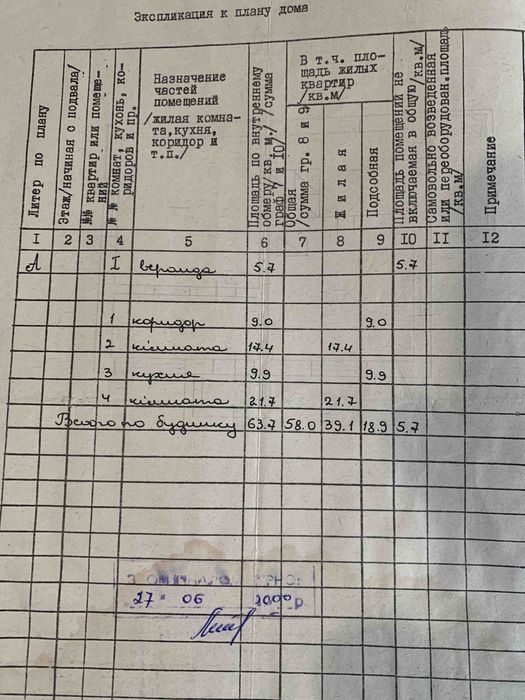 Экспликация к плану дома
Литер по плану
Этаж/начиная с подвала/
№№ квартир или помеще-
ний
№ № комнат, кухонь, ко-
ридоров и пр.
Назначение
частей
помещений
/жилая комна-
та,кухня,
коридор и
т.п./
Площадь по внутреннему
обмеру/кв. м./ /сумма
граф 7 и 10/
В т.ч. пло-
щадь жилых
квартир
/кв.м/
Общая
/сумма гр. 8 и 9/
Жилая
Подсобная
Площадь помещений не
включаемая в общую/кв.м/
Самовольно возведенная
или переоборудован.площадь
/кв.м/
Примечание
I 2 3 4 5 6 7 8 9 IO II I2
А I веранда 5.7 5.7
1 коридор 9.0 9.0
2 кімната 17.4 17.4
3 кухня 9.9 9.9
4 кімната 21.7 21.7
Всього по будинку 63.7 58.0 39.1 18.9 5.7
27 06 2000 р.